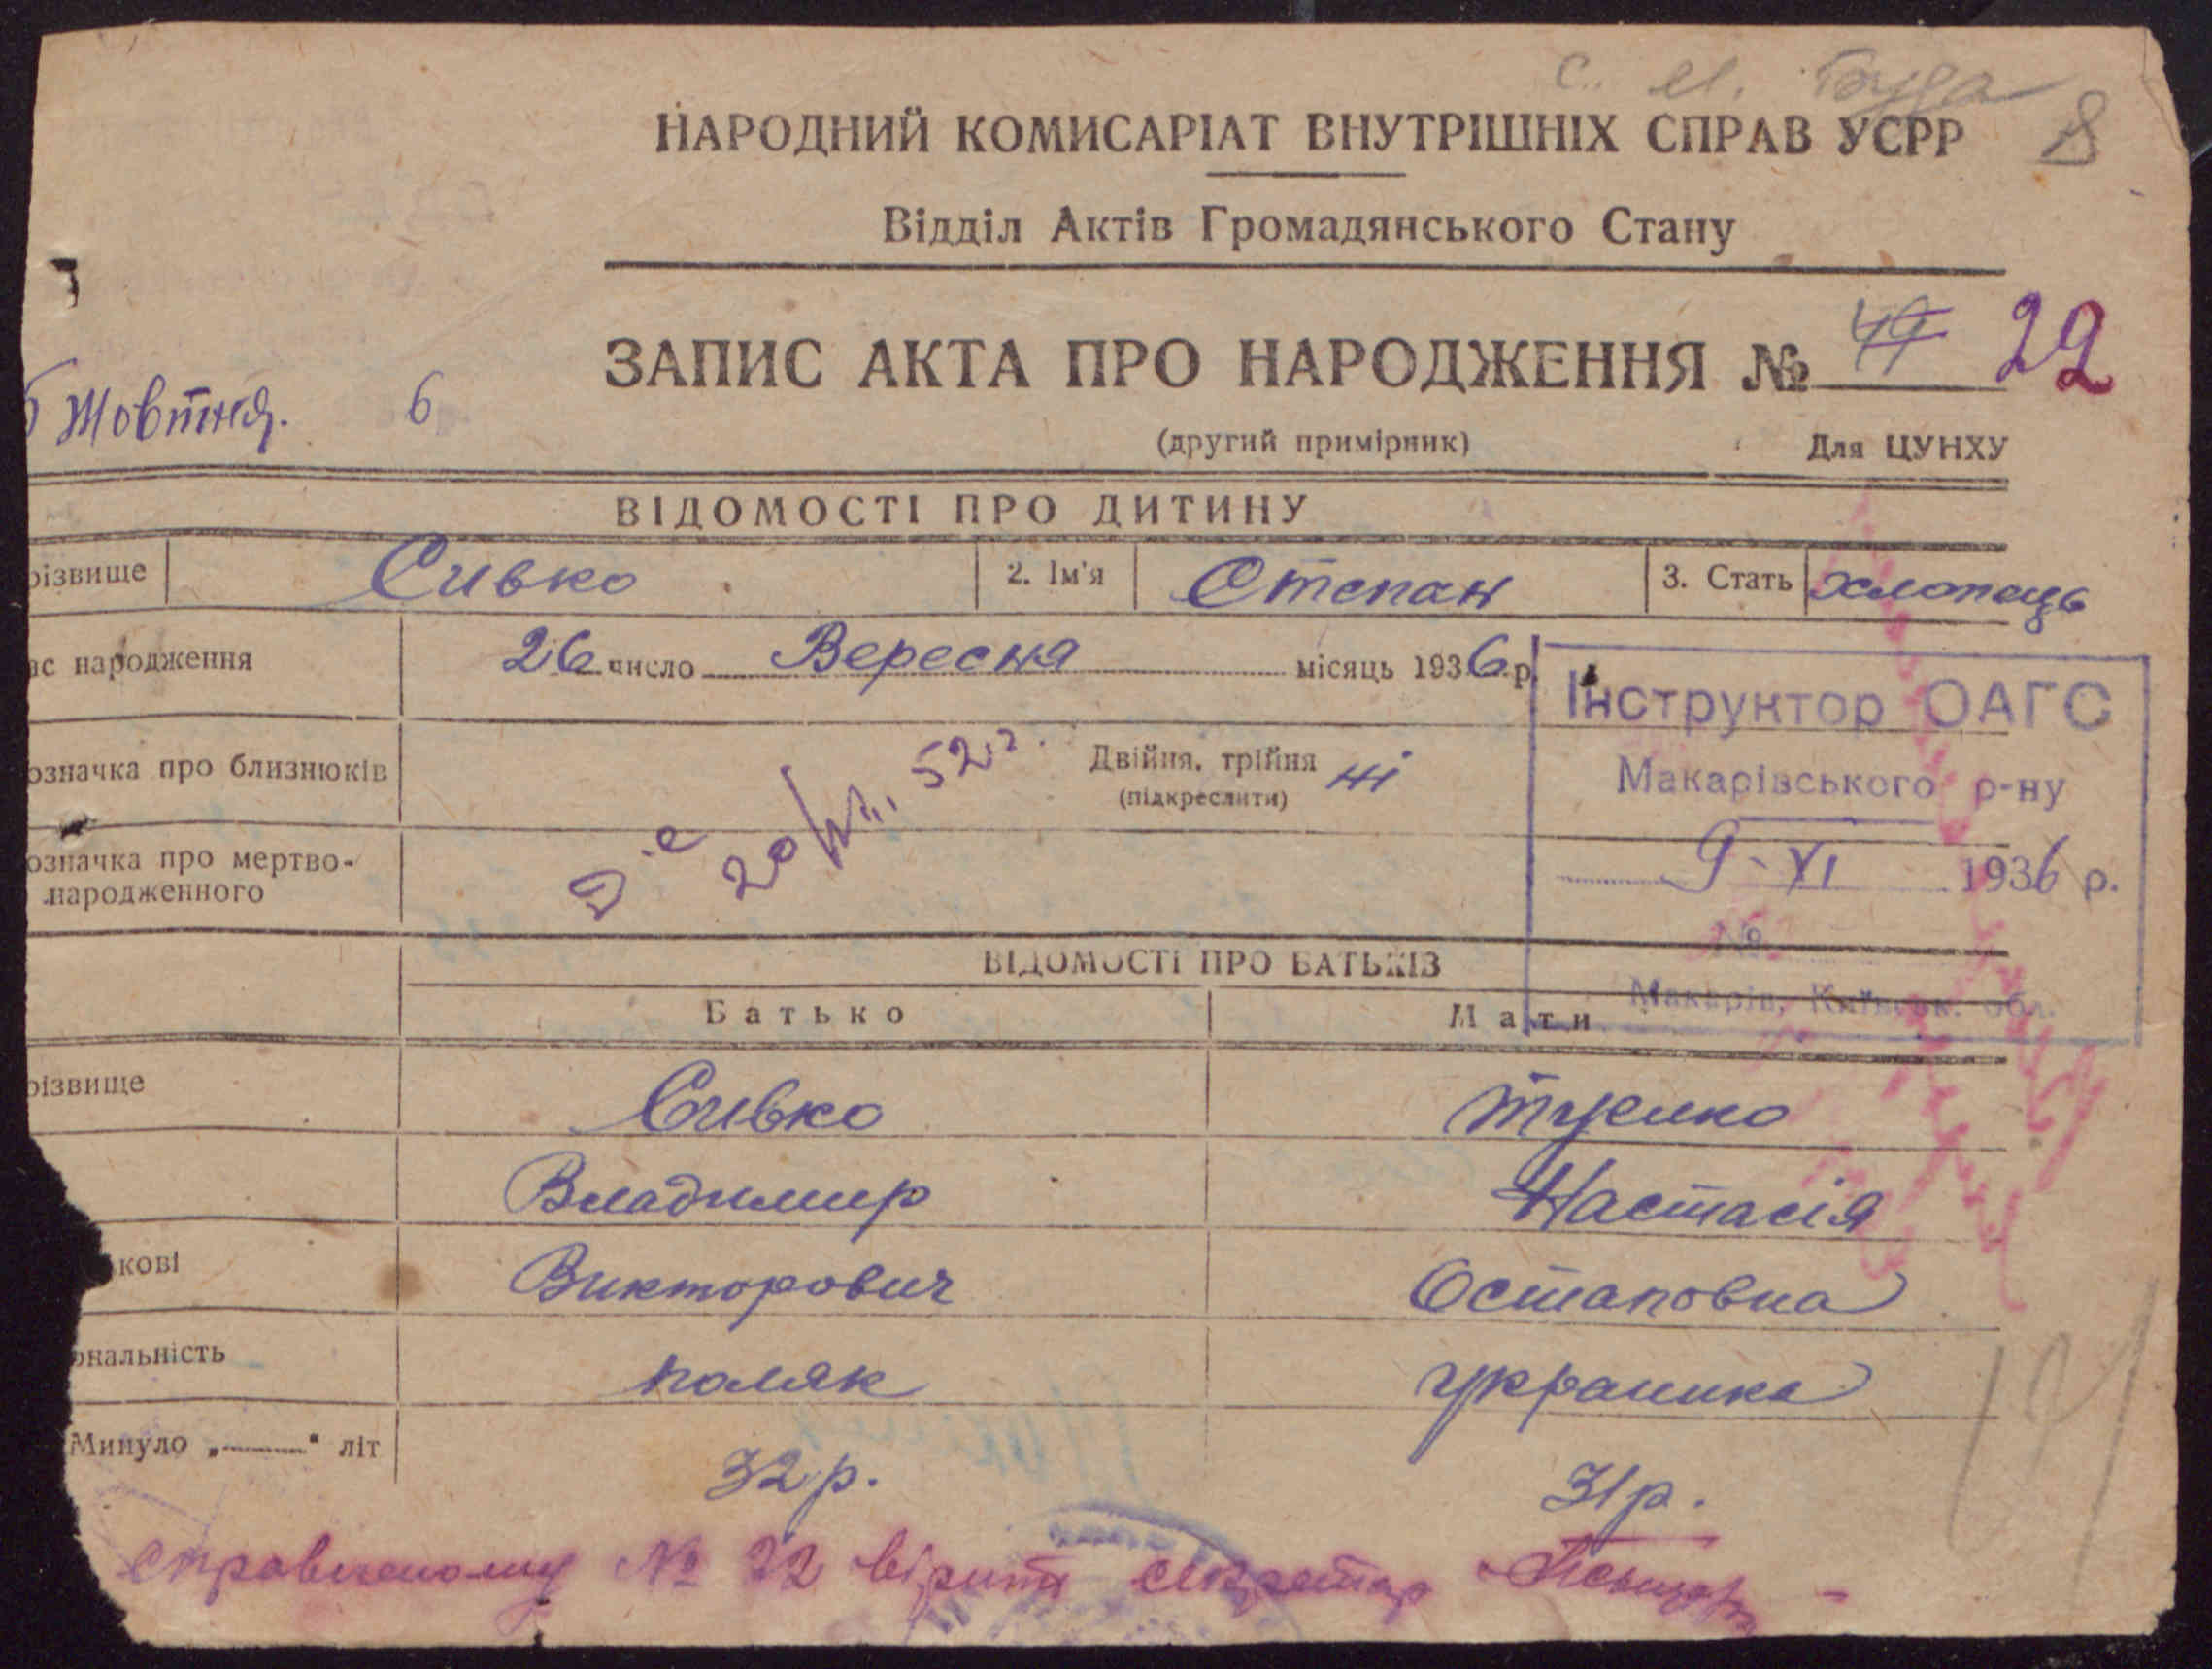 с. М. Буда
8
НАРОДНИЙ КОМИСАРІАТ ВНУТРІШНІХ СПРАВ УСРР
Відділ Актів Громадянського Стану
ЗАПИС АКТА ПРО НАРОДЖЕННЯ № 49 22
Жовтня. 6
(другий примірник) Для ЦУНХУ
ВІДОМОСТІ ПРО ДИТИНУ
різвище Сивко 2. Ім'я Степан 3. Стать хлопець
ас народження 26 число Вересня місяць 1936 р.
Інструктор ОАГС
Макарівського р-ну
9-XI 1936 р.
№
Макарів, Київськ. обл.
означка про близнюків Двійня, трійня ні
(підкреслити)
52
означка про мертво-
народженного
ВІДОМОСТІ ПРО БАТЬКІВ
Батько Мати
різвище Сивко
Владимир Настасія
кові Викторович Остаповна
ональність поляк украинка
Минуло „ “ літ 32 р. 31 р.
справленому № 22 вірити секретар